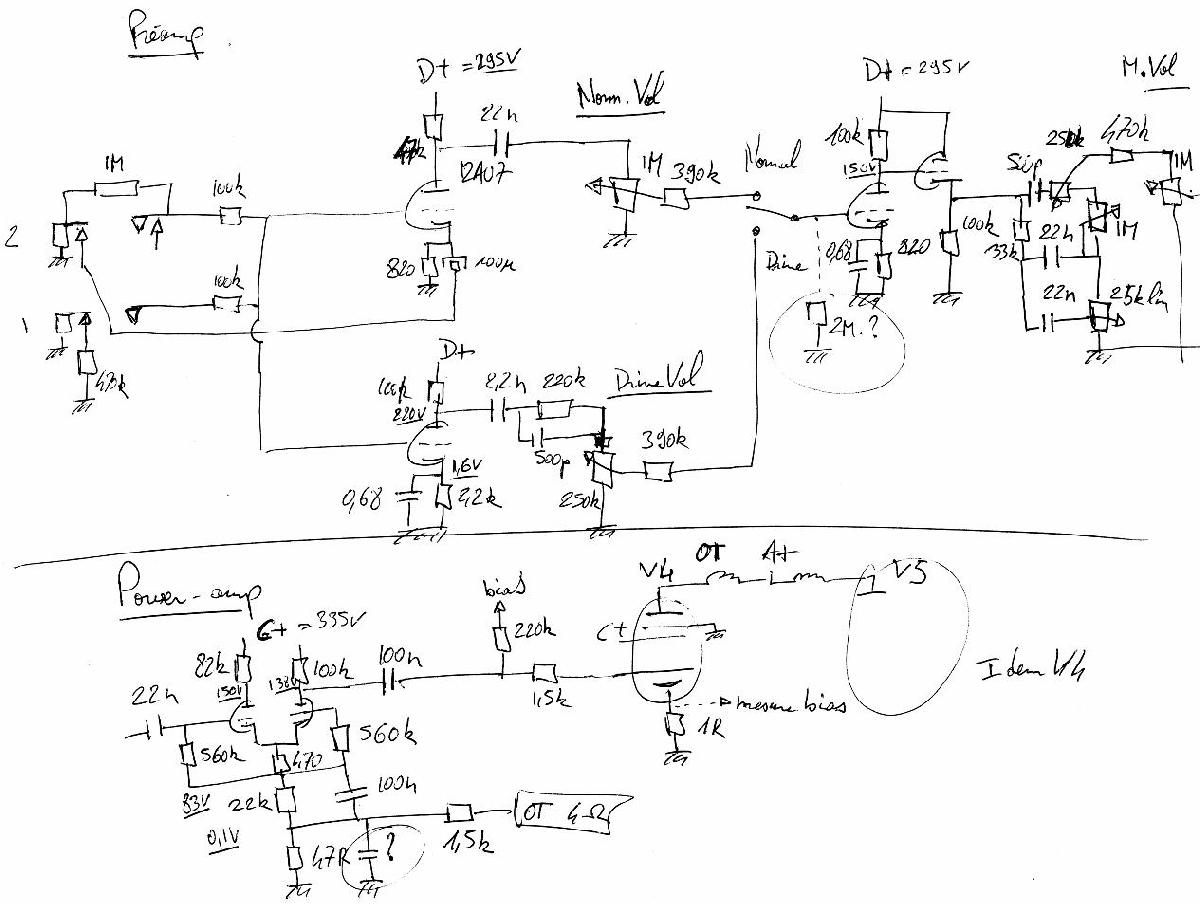 Préamp.
D+ = 295V
22n
Norm. Vol
D+ = 295V
M.Vol
100k
150V
250k
470k
1M
1M
100k
12AU7
1M
390k
Normal
50p
2
820
100µ
100k
Drive
0,68
820
100k
33k
22n
1M
22n
25k lin
1
2M.?
D+
100k
220V
2,2n
220k
Drive Vol
500p
390k
1,6V
0,68
2,2k
250k
Power-amp
bias
V4
OT
A+
V5
C+ = 335V
82k
100k
100n
220k
C+
22n
150V
1,5k
Idem V4
mesure bias
1R
560k
470
560k
100n
83V
22k
0,1V
OT 4Ω
47R
?
1,5k